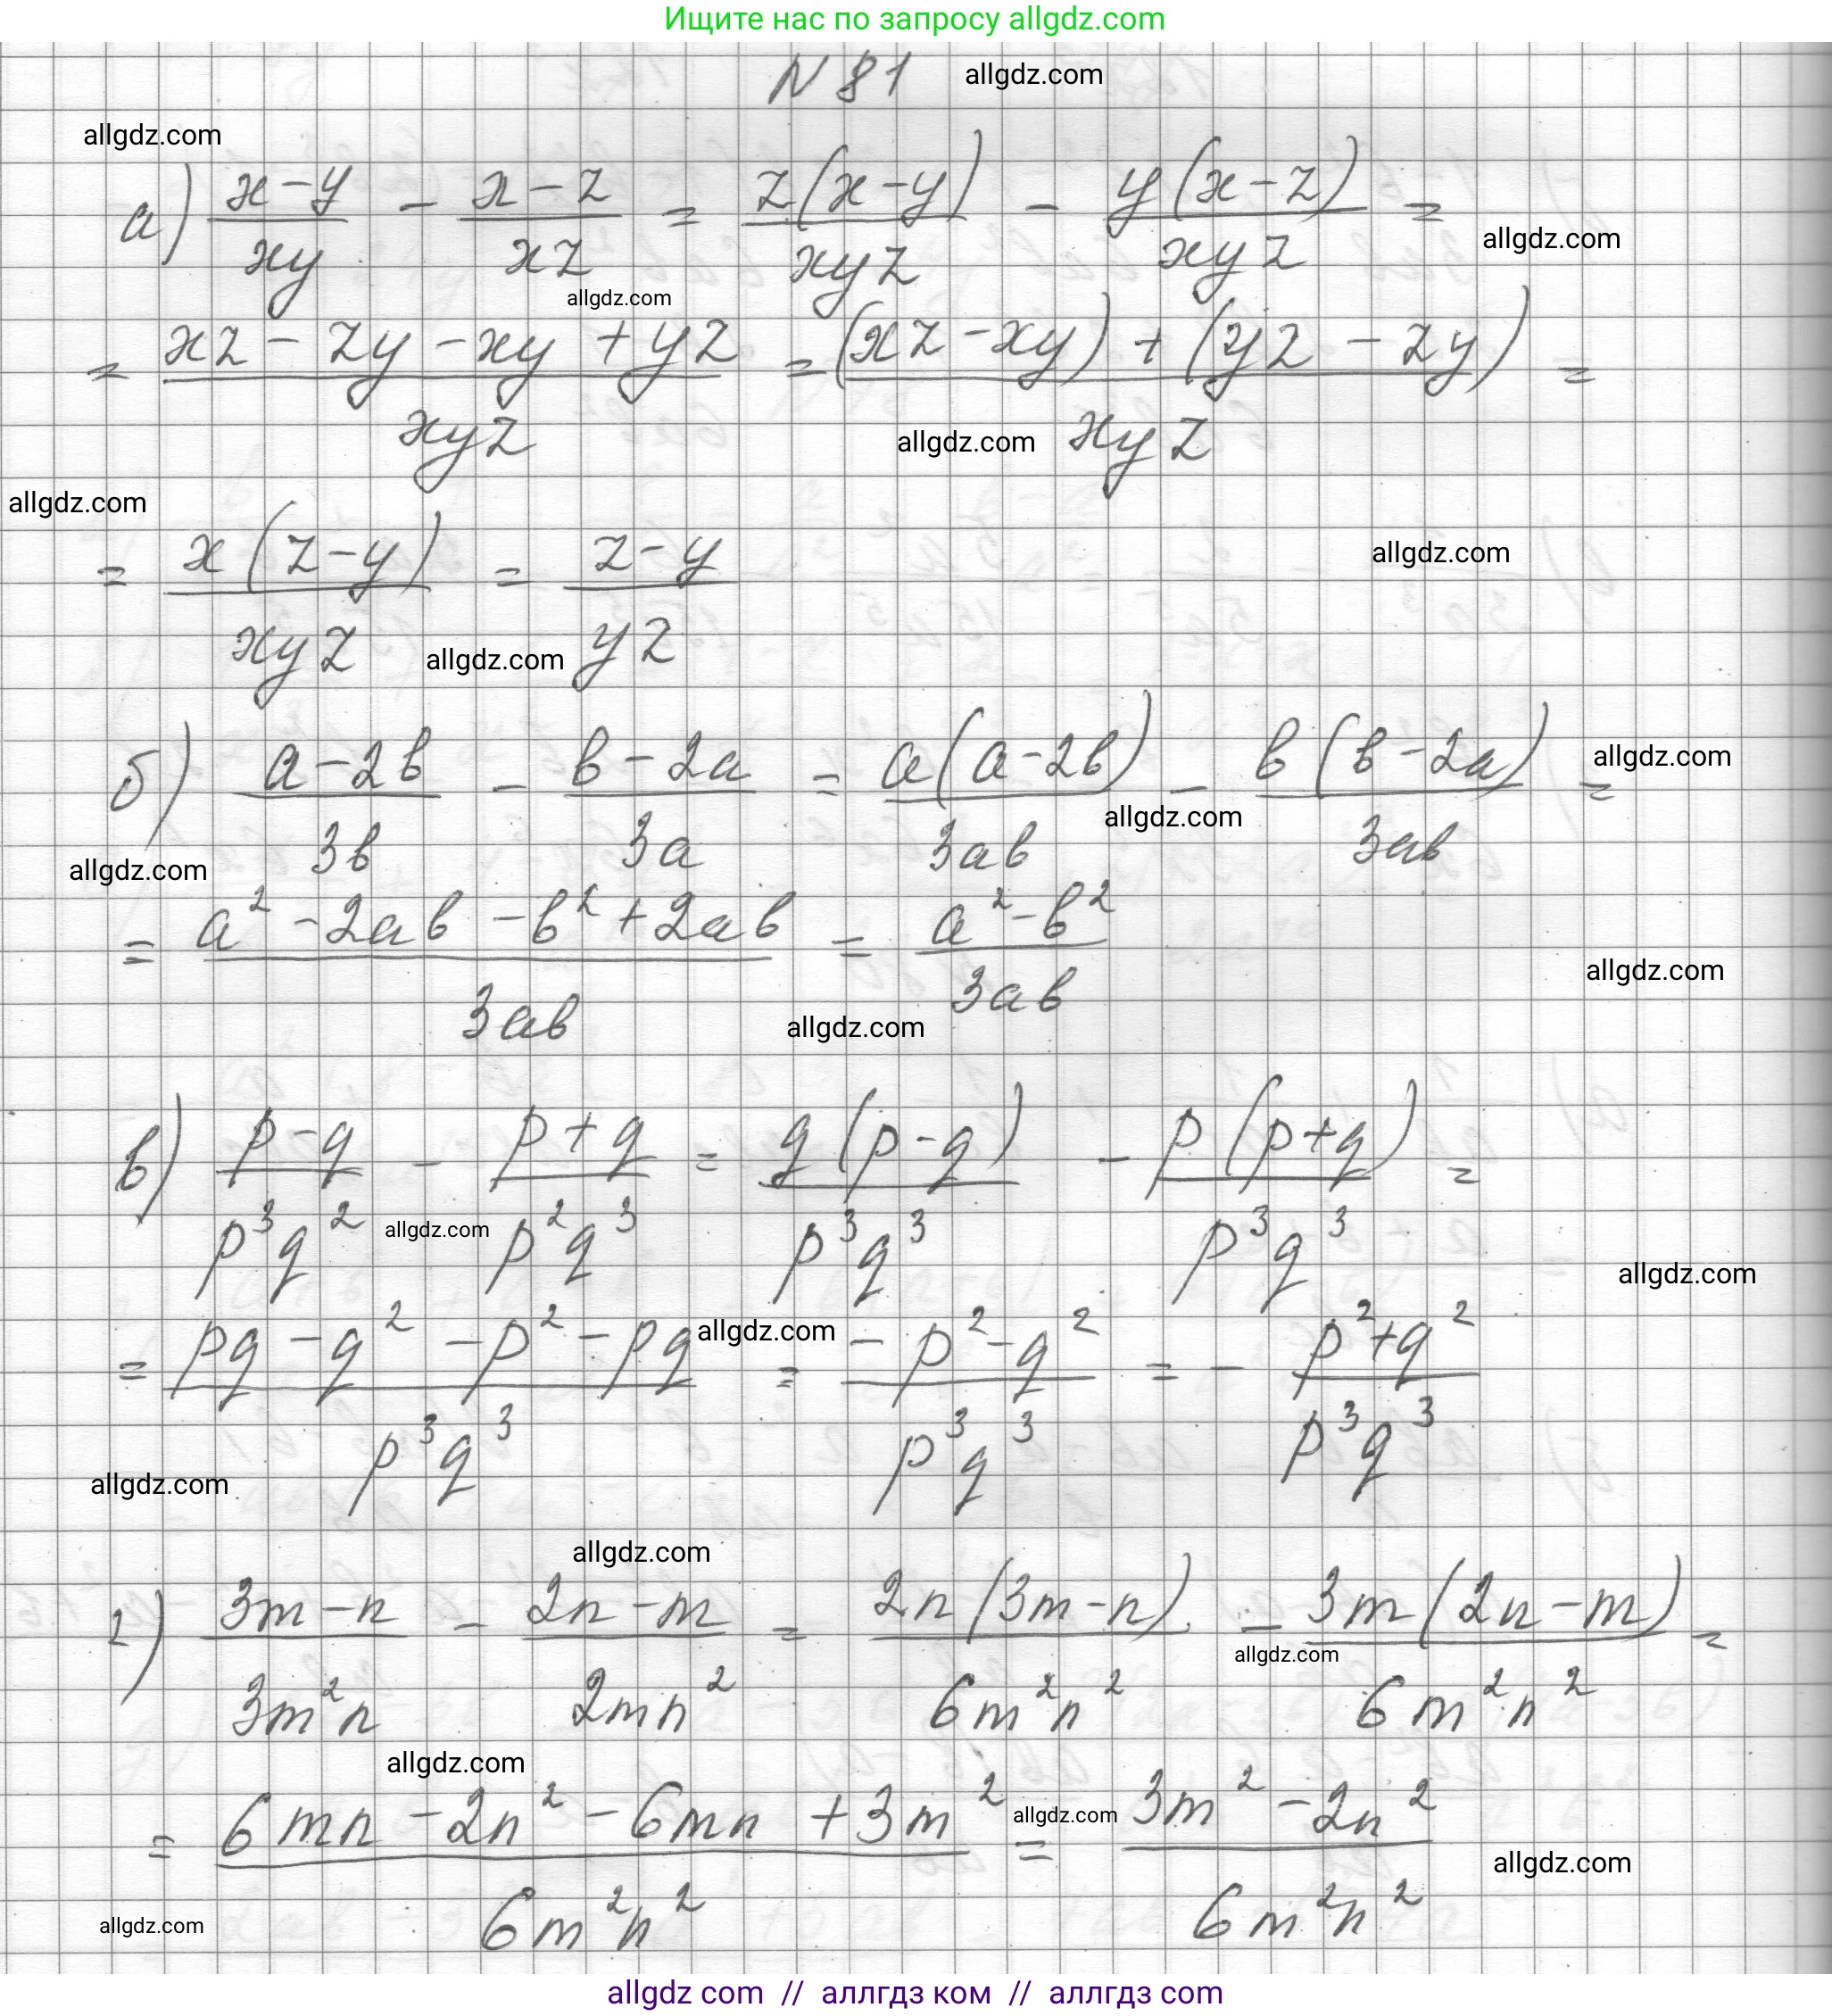 Ищите нас по запросу allgdz.com
N 81 allgdz.com
allgdz.com
а) (x-y)/(xy) - (x-z)/(xz) = z(x-y)/(xyz) - y(x-z)/(xyz) =
allgdz.com
allgdz.com
= (xz - zy - xy + yz)/(xyz) = ((xz - xy) + (yz - zy))/(xyz) =
allgdz.com
allgdz.com
= x(z-y)/(xyz) = (z-y)/(yz)
allgdz.com
allgdz.com
б) (a-2b)/(3b) - (b-2a)/(3a) = a(a-2b)/(3ab) - b(b-2a)/(3ab) =
allgdz.com
allgdz.com
allgdz.com
= (a² - 2ab - b² + 2ab)/(3ab) = (a² - b²)/(3ab)
allgdz.com
allgdz.com
в) (p-q)/(p³q²) - (p+q)/(p²q³) = q(p-q)/(p³q³) - p(p+q)/(p³q³) =
allgdz.com
allgdz.com
= (pq - q² - p² - pq)/(p³q³) = (-p² - q²)/(p³q³) = - (p² + q²)/(p³q³)
allgdz.com
allgdz.com
allgdz.com
г) (3m-n)/(3m²n) - (2n-m)/(2mn²) = 2n(3m-n)/(6m²n²) - 3m(2n-m)/(6m²n²) =
allgdz.com
allgdz.com
= (6mn - 2n² - 6mn + 3m²)/(6m²n²) = (3m² - 2n²)/(6m²n²)
allgdz.com
allgdz.com
allgdz.com
allgdz com // аллгдз ком // аллгдз com